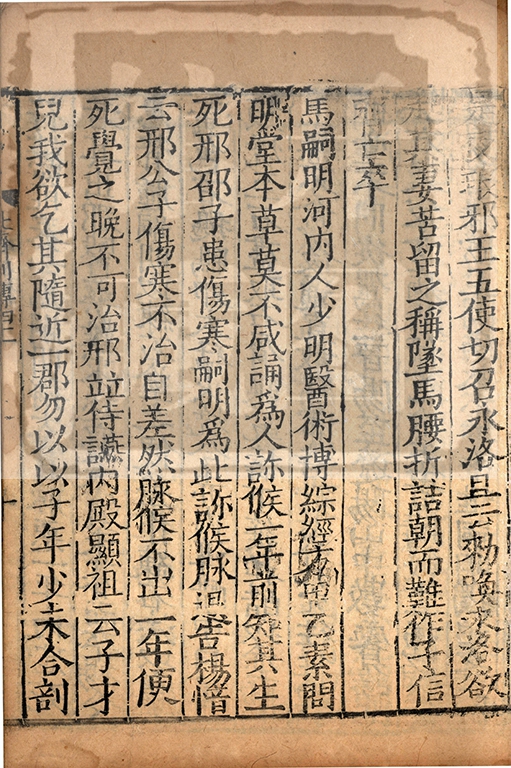 是夜琅邪王五使切召永洛且云勑喚永洛欲
起其妻苦留之稱墜馬腰折詰朝而難作子信
齊亡卒
馬嗣明河內人少明醫術博綜經方甲乙素問
明堂本草莫不咸誦爲人診候一年前知其生
死邢邵子患傷寒嗣明爲此診候脉退告楊愔
云邢公子傷寒不治自差然脉候不出一年便
死覺之晚不可治邢竝侍讌內殿顯祖云子才
兒我欲乞其隨近一郡勿以以子年少未合剖